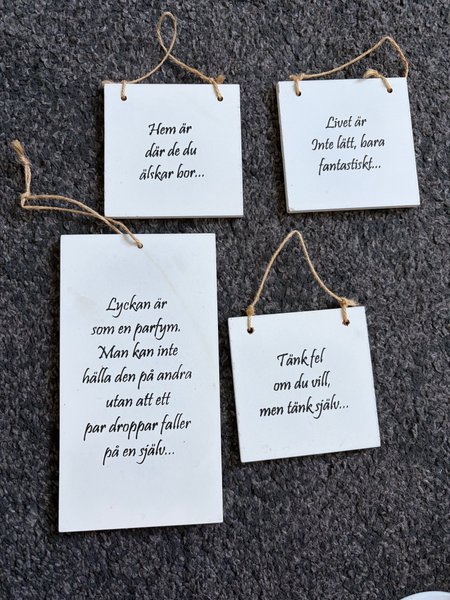 Hem är
där de du
älskar bor...
Livet är
Inte lätt, bara
fantastiskt...
Lyckan är
som en parfym.
Man kan inte
hälla den på andra
utan att ett
par droppar faller
på en själv...
Tänk fel
om du vill,
men tänk själv...